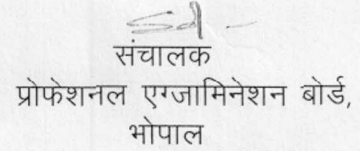 Sd -
संचालक
प्रोफेशनल एग्जामिनेशन बोर्ड,
भोपाल